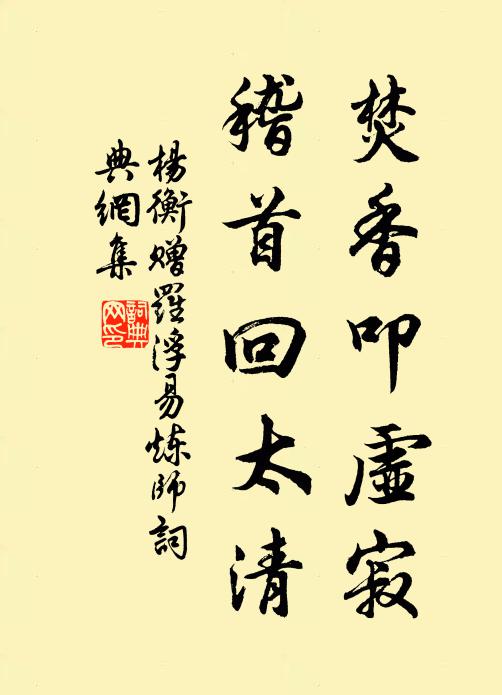 焚香叩虛寂
稽首回太清
楊衡贈羅浮易煉師詞
典網集
詞典網印